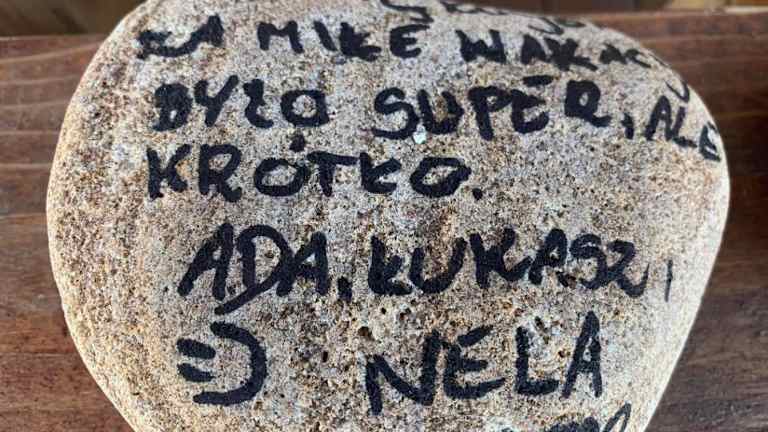 ZA MIŁE WAKACJ
BYŁO SUPER, ALE
KRÓTKO.
ADA, ŁUKASZ,
=) NELA